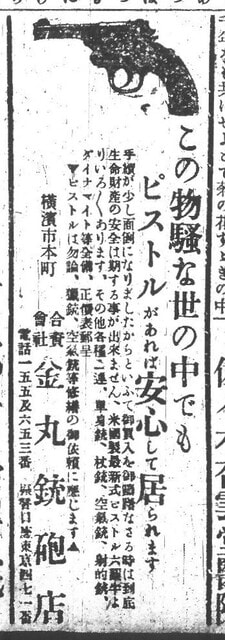 この物騒な世の中でも
ピストルがあれば安心して居られます
手續が少し面倒になりましたからといつて御買入を御躊躇なさる時は到底
生命財産の安全は期する事が出來ません、米國製最新式ピストル六連發は
いろ〱あります、その他各種二連、單身銃、杖銃、空氣銃、射的銃、
ダイナマイト等全備、正價表郵呈
▼ピストルは勿論、獵銃、空氣銃等修繕の御依頼に應じます▲
横濱市本町
合資會社 金丸銃砲店
電話一五五及六五三番 振替口座東京四七一番